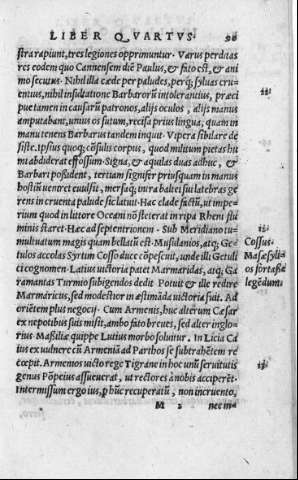 LIBER QVARTVS 90
stra rapiunt, tres legiones opprimuntur. Varus perditas
res eodem quo Cannensem diē Paulus, & fato est, & ani
mo secutus. Nihil illa cæde per paludes, perq; syluas cru
entius, nihil insultatione Barbarorū intolerantius, præci
pue tamen in causarū patronos, alijs oculos, alijs manus
amputabant, unius os sutum, recisa prius lingua, quam in
manu tenens Barbarus tandem inquit. Vipera sibilare de
siste. Ipsius quoq; cōsulis corpus, quod militum pietas hu
mi abdiderat effossum. Signa, & aquilas duas adhuc, &
Barbari possident, tertiam signifer priusquam in manus
hostiū ueniret euulsit, mersaq; intra baltei sui latebras ge
rens in cruenta palude sic latuit. Hac clade factū, ut impe
rium quod in littore Oceani nō steterat in ripa Rheni flu
minis staret. Hæc ad septentrionem. Sub Meridiano tu-
multuatum magis quam bellatū est. Musulanios, atq; Ge
tulos accolas Syrtim Cosso duce cōpescuit, unde illi Getuli
ci cognomen. Latius uictoria patet. Marmaridas, atq; Ga
ramantas Turmio subigendos dedit. Potuit & ille redire
Marmaricus, sed modestior in æstimāda uictoria fuit. Ad
oriētem plus negocij. Cum Armenis, huc alterum Cæsar
ex nepotibus suis misit, ambo fato breues, sed alter inglo-
rius. Massiliæ quippe Lutius morbo soluitur. In Licia Ca
ius ex uulnere cū Armeniā ad Parthos se subtrahētem re
cœpit. Armenios uicto rege Tigrane in hoc unū seruitutis
genus Pōpeius assueuerat, ut rectores à nobis acciperēt.
Intermissum ergo ius, p hūc recuperatū, non incruento,
M 2 nec in-
Cossus.
Masæsyli-
os fortasse
legēdum.